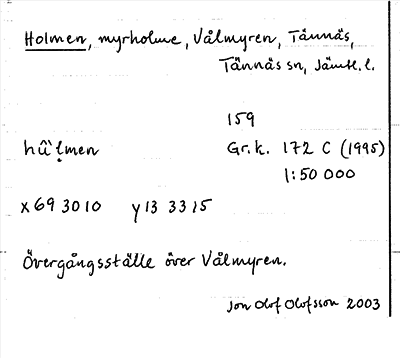 Holmen, myrholme, Vålmyren, Tännäs,
Tännäs sn, Jämtl. l.
159
hû`ḷmen Gr.k. 172 C (1995)
1:50 000
x 69 30 10 y 13 33 15
Övergångsställe över Vålmyren.
Jon Olof Olofsson 2003